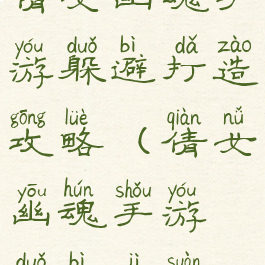 倩女幽魂手
yóu duǒ bì dǎ zào
游躲避打造
gōng lüè qiàn nǚ
攻略(倩女
yōu hún shǒu yóu
幽魂手游
duǒ bì jì suàn